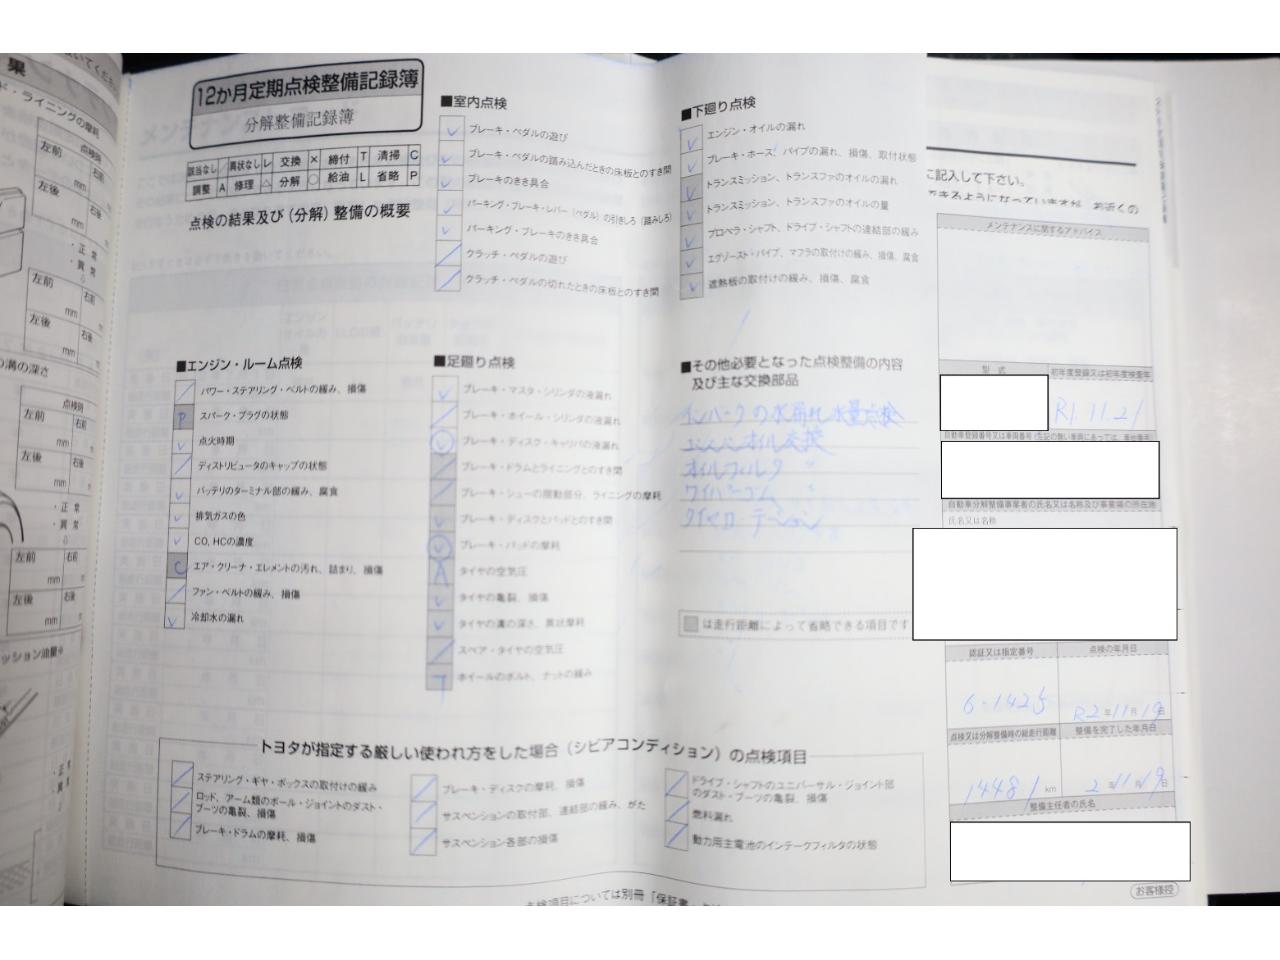 果
ド・ライニングの摩耗
左前
右前
mm
左後
右後
mm
・正常
・異常
左前
右前
mm
左後
右後
mm
の溝の深さ
左前
右前
mm
左後
右後
mm
・正常
・異常
左前
右前
mm
左後
右後
mm
ッション油量※
12か月定期点検整備記録簿
分解整備記録簿
該当なし ／ 異状なし レ 交換 × 締付 T 清掃 C
調整 A 修理 △ 分解 ○ 給油 L 省略 P
点検の結果及び(分解)整備の概要
■室内点検
ブレーキ・ペダルの遊び
ブレーキ・ペダルの踏み込んだときの床板とのすき間
ブレーキのきき具合
パーキング・ブレーキ・レバー(ペダル)の引きしろ(踏みしろ)
パーキング・ブレーキのきき具合
クラッチ・ペダルの遊び
クラッチ・ペダルの切れたときの床板とのすき間
■下廻り点検
エンジン・オイルの漏れ
ブレーキ・ホース、パイプの漏れ、損傷、取付状態
トランスミッション、トランスファのオイルの漏れ
トランスミッション、トランスファのオイルの量
プロペラ・シャフト、ドライブ・シャフトの連結部の緩み
エグゾースト・パイプ、マフラの取付けの緩み、損傷、腐食
遮熱板の取付けの緩み、損傷、腐食
■エンジン・ルーム点検
パワー・ステアリング・ベルトの緩み、損傷
P スパーク・プラグの状態
点火時期
ディストリビュータのキャップの状態
バッテリのターミナル部の緩み、腐食
排気ガスの色
CO, HCの濃度
C エア・クリーナ・エレメントの汚れ、詰まり、損傷
ファン・ベルトの緩み、損傷
冷却水の漏れ
■足廻り点検
ブレーキ・マスタ・シリンダの液漏れ
ブレーキ・ホイール・シリンダの液漏れ
ブレーキ・ディスク・キャリパの液漏れ
ブレーキ・ドラムとライニングとのすき間
ブレーキ・シューの摺動部分、ライニングの摩耗
ブレーキ・ディスクとパッドとのすき間
ブレーキ・パッドの摩耗
A タイヤの空気圧
タイヤの亀裂、損傷
タイヤの溝の深さ、異状摩耗
スペア・タイヤの空気圧
T ホイールのボルト、ナットの緩み
■その他必要となった点検整備の内容
及び主な交換部品
インバータの水漏れ水量点検
エンジンオイル交換
オイルフィルタ 〃
ワイパーゴム 〃
タイヤローテーション
は走行距離によって省略できる項目です
トヨタが指定する厳しい使われ方をした場合(シビアコンディション)の点検項目
ステアリング・ギヤ・ボックスの取付けの緩み
ロッド、アーム類のボール・ジョイントのダスト・
ブーツの亀裂、損傷
ブレーキ・ドラムの摩耗、損傷
ブレーキ・ディスクの摩耗、損傷
サスペンションの取付部、連結部の緩み、がた
サスペンション各部の損傷
ドライブ・シャフトのユニバーサル・ジョイント部
のダスト・ブーツの亀裂、損傷
燃料漏れ
動力用主電池のインテークフィルタの状態
点検項目については別冊「保証書
に記入して下さい。
メンテナンスに関するアドバイス
型式
初年度登録又は初年度検査年
R1.11.21
自動車分解整備事業者の氏名又は名称及び事業場の所在地
氏名又は名称
認証又は指定番号
点検の年月日
6-1425
R2年11月19日
点検又は分解整備時の総走行距離
整備を完了した年月日
14481 km
2年11月19日
整備主任者の氏名
お客様控